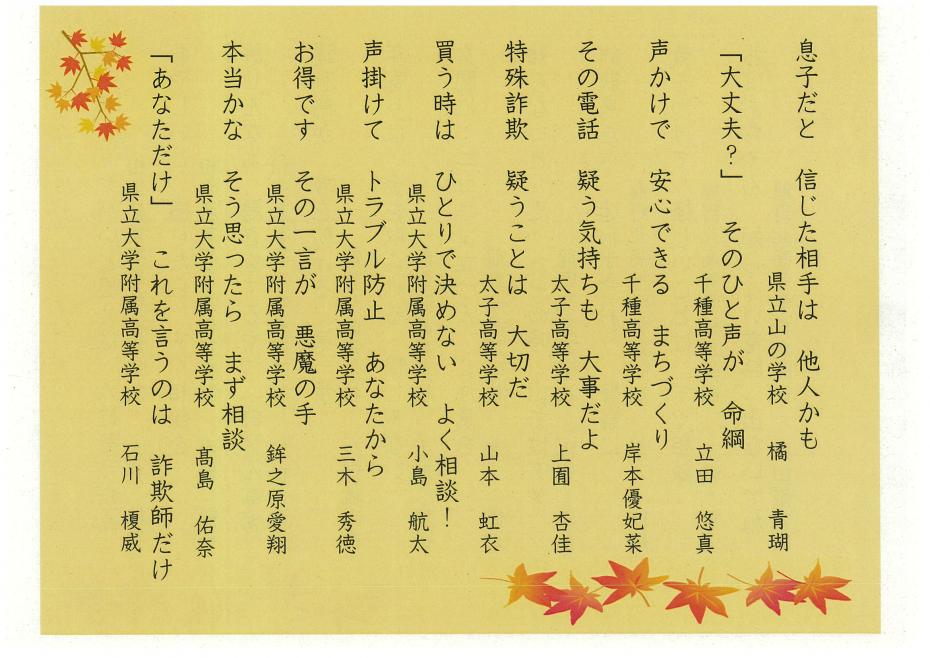 息子だと　信じた相手は　他人かも
県立山の学校　橘　青瑚
「大丈夫？」　そのひと声が　命綱
千種高等学校　立田　悠真
声かけで　安心できる　まちづくり
千種高等学校　岸本優妃菜
その電話　疑う気持ちも　大事だよ
太子高等学校　上囿　杏佳
特殊詐欺　疑うことは　大切だ
太子高等学校　山本　虹衣
買う時は　ひとりで決めない　よく相談！
県立大学附属高等学校　小島　航太
声掛けて　トラブル防止　あなたから
県立大学附属高等学校　三木　秀徳
お得です　その一言が　悪魔の手
県立大学附属高等学校　鉾之原愛翔
本当かな　そう思ったら　まず相談
県立大学附属高等学校　髙島　佑奈
「あなただけ」　これを言うのは　詐欺師だけ
県立大学附属高等学校　石川　榎威